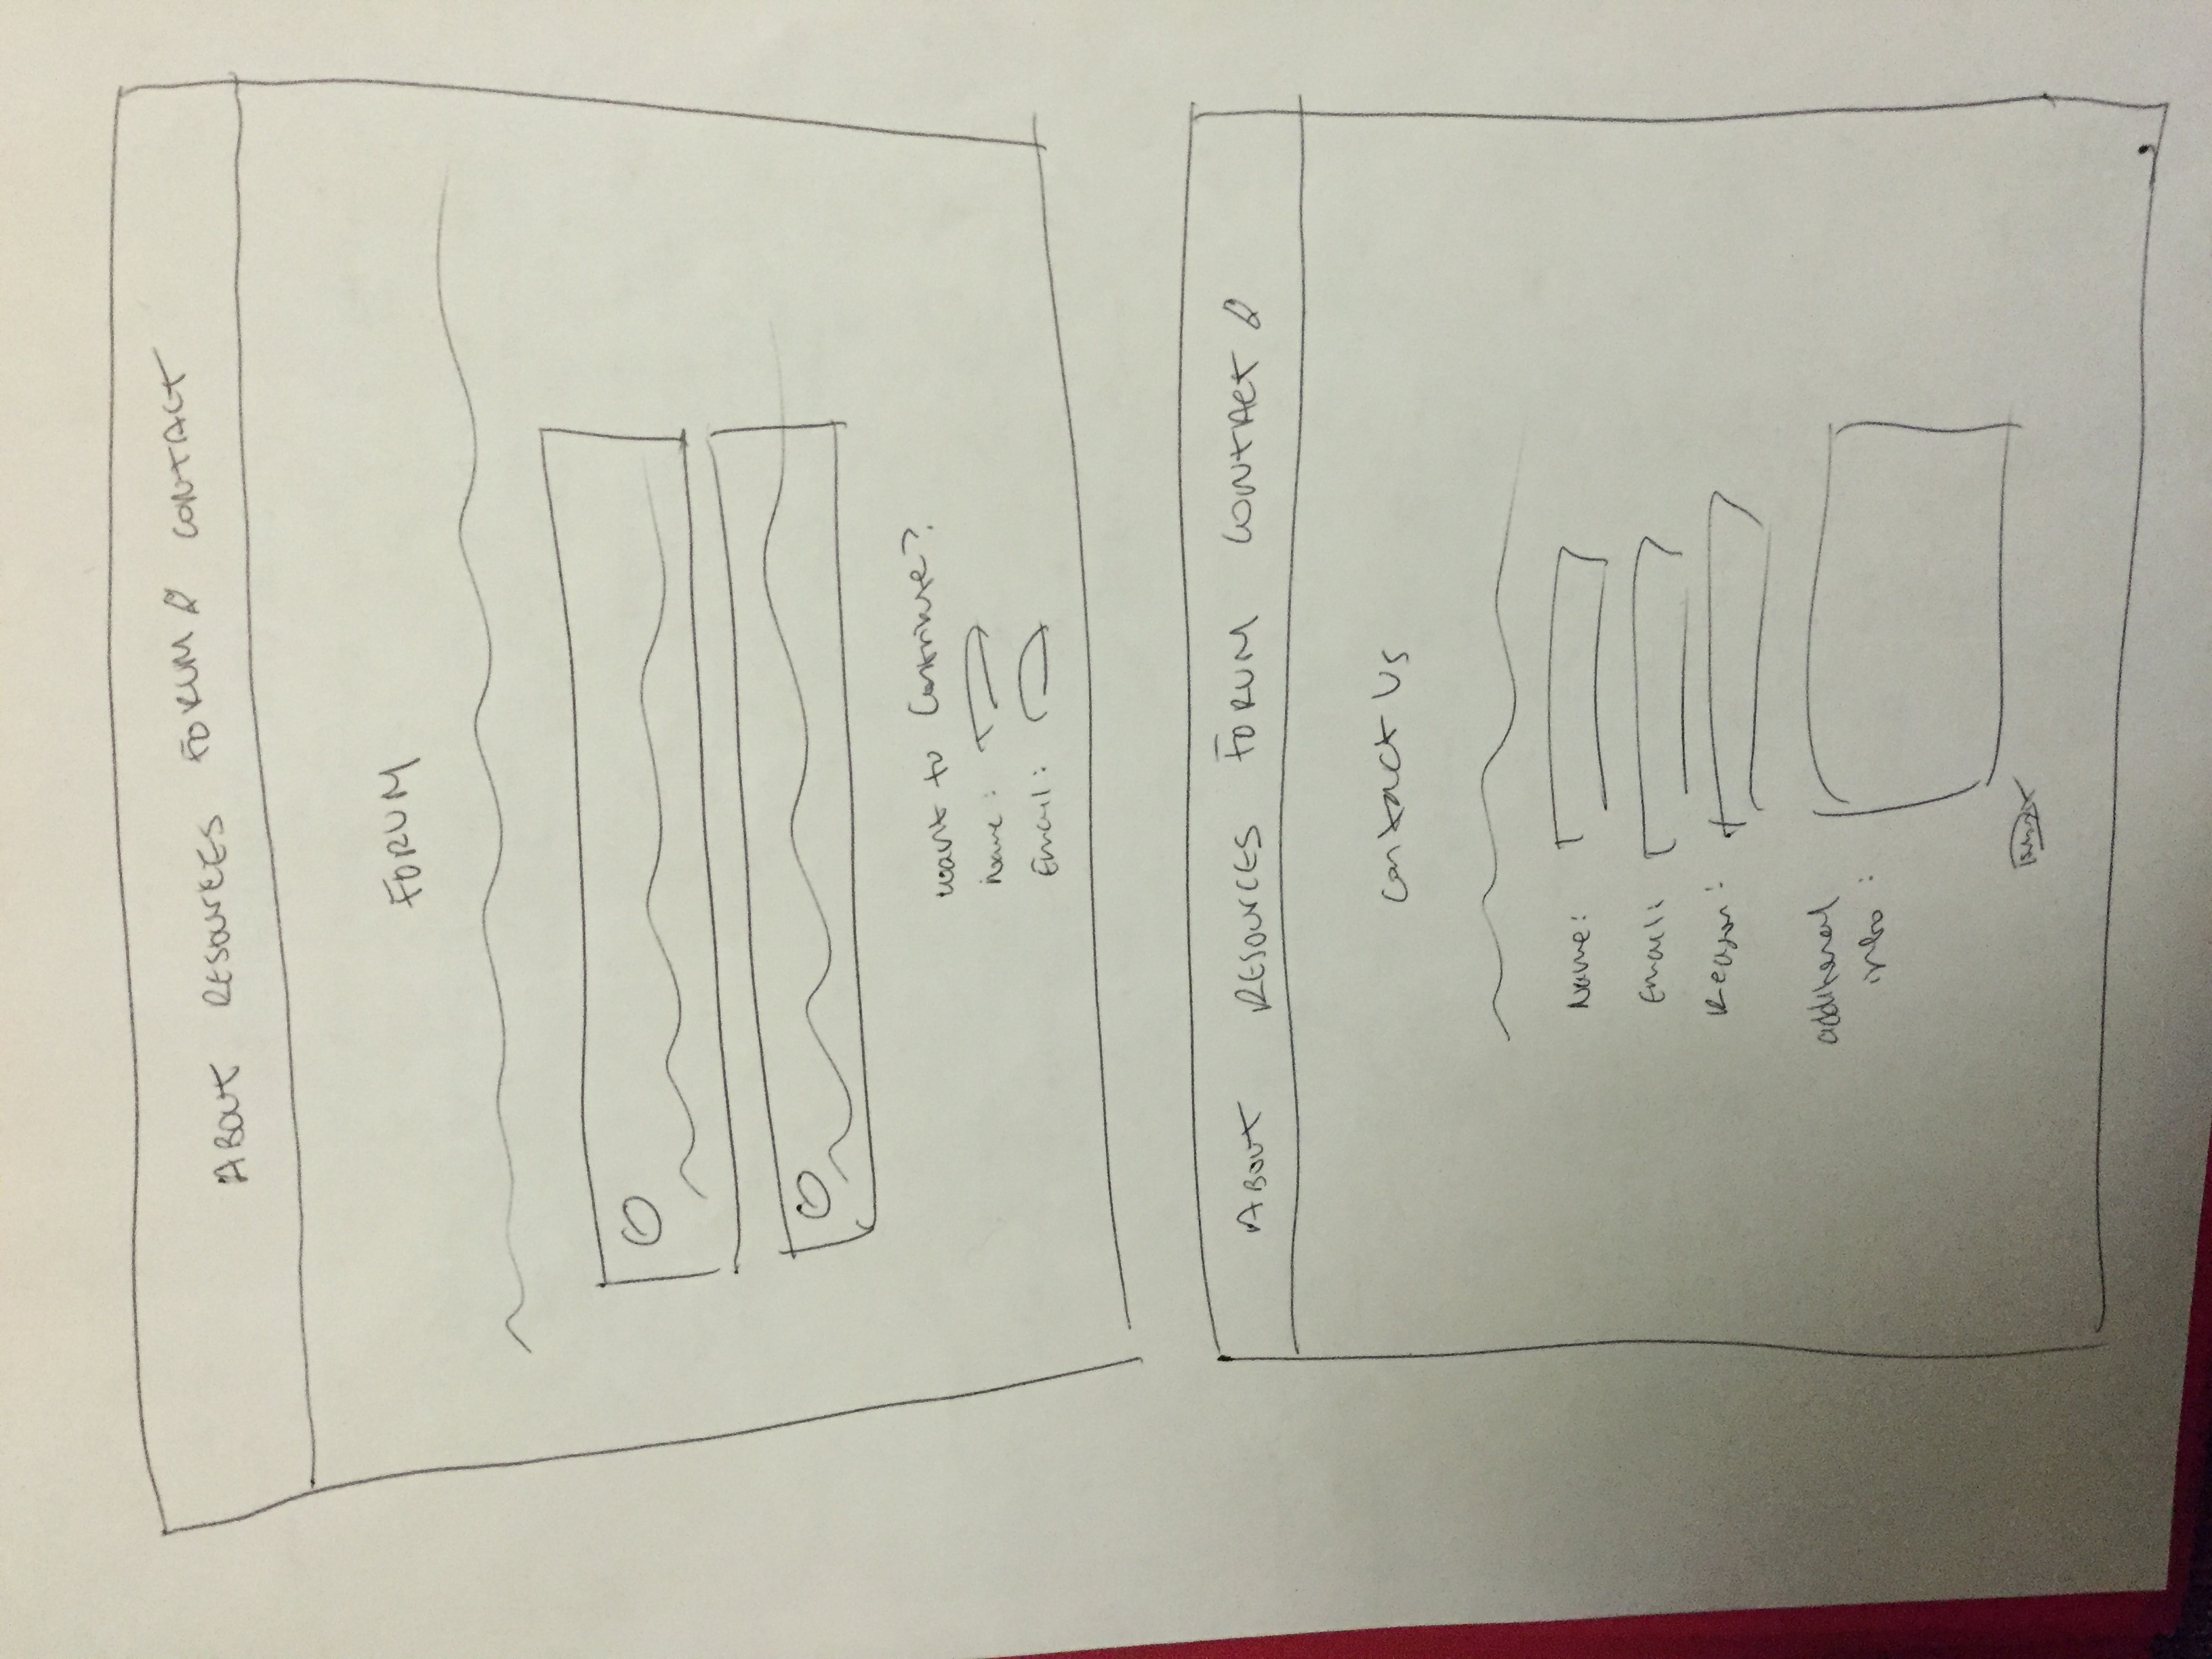 ABOUT RESOURCES FORUM CONTACT
FORUM
want to Contribute?
Name:
Email:
ABOUT RESOURCES FORUM CONTACT
Contact Us
Name:
Email:
Reason:
additional
info: